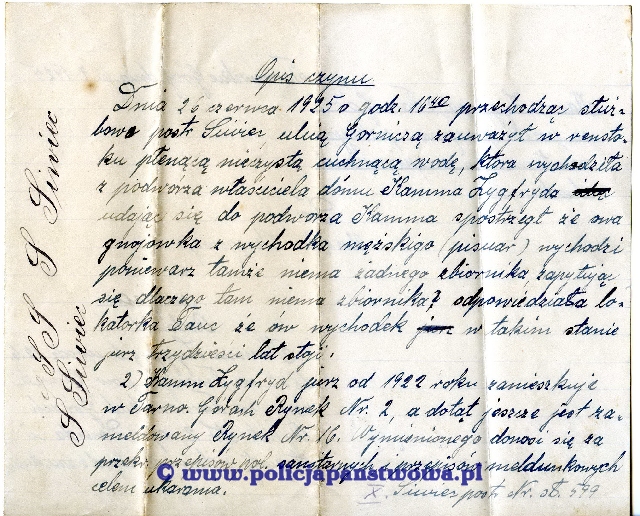 Opis czynu
Dnia 26 czerwca 1925 o godz. 16 40 przechodząc służ-
bowo postr Siwiec ulicą Górniczą zauważył w rensto-
ku płenącą nieczystą cuchnącą wodę, która wychodziła
z podwórza właściciela dómu Kamma Zygfryda
udając się do podwórza Kamma spostrzegł że owa
gnojówka z wychodka męzskigo (pisuar) wychodzi
poniewarz tamże niema żadnego zbiornika zapytując
się dlaczego tam niema zbiornika? odpowiedziała lo-
katorka Tauc że ów wychodek w takim stanie
jurz trzydzieści lat stoji.
2) Kamm Zygfryd jurz od 1922 roku zamieszkuje
w Tarno. Górach Rynek Nr. 2, a dotąt jeszcze jest za-
meldowany Rynek Nr. 16. Wymienionego donosi się za
przekr. przepisów pol. sanitarnych i przepisów meldunkowych
celem ukarania.
X. Siwiec postr. Nr. sł. 599
S S S Siwiec
S S
S Siwiec
© www.policjapanstwowa.pl